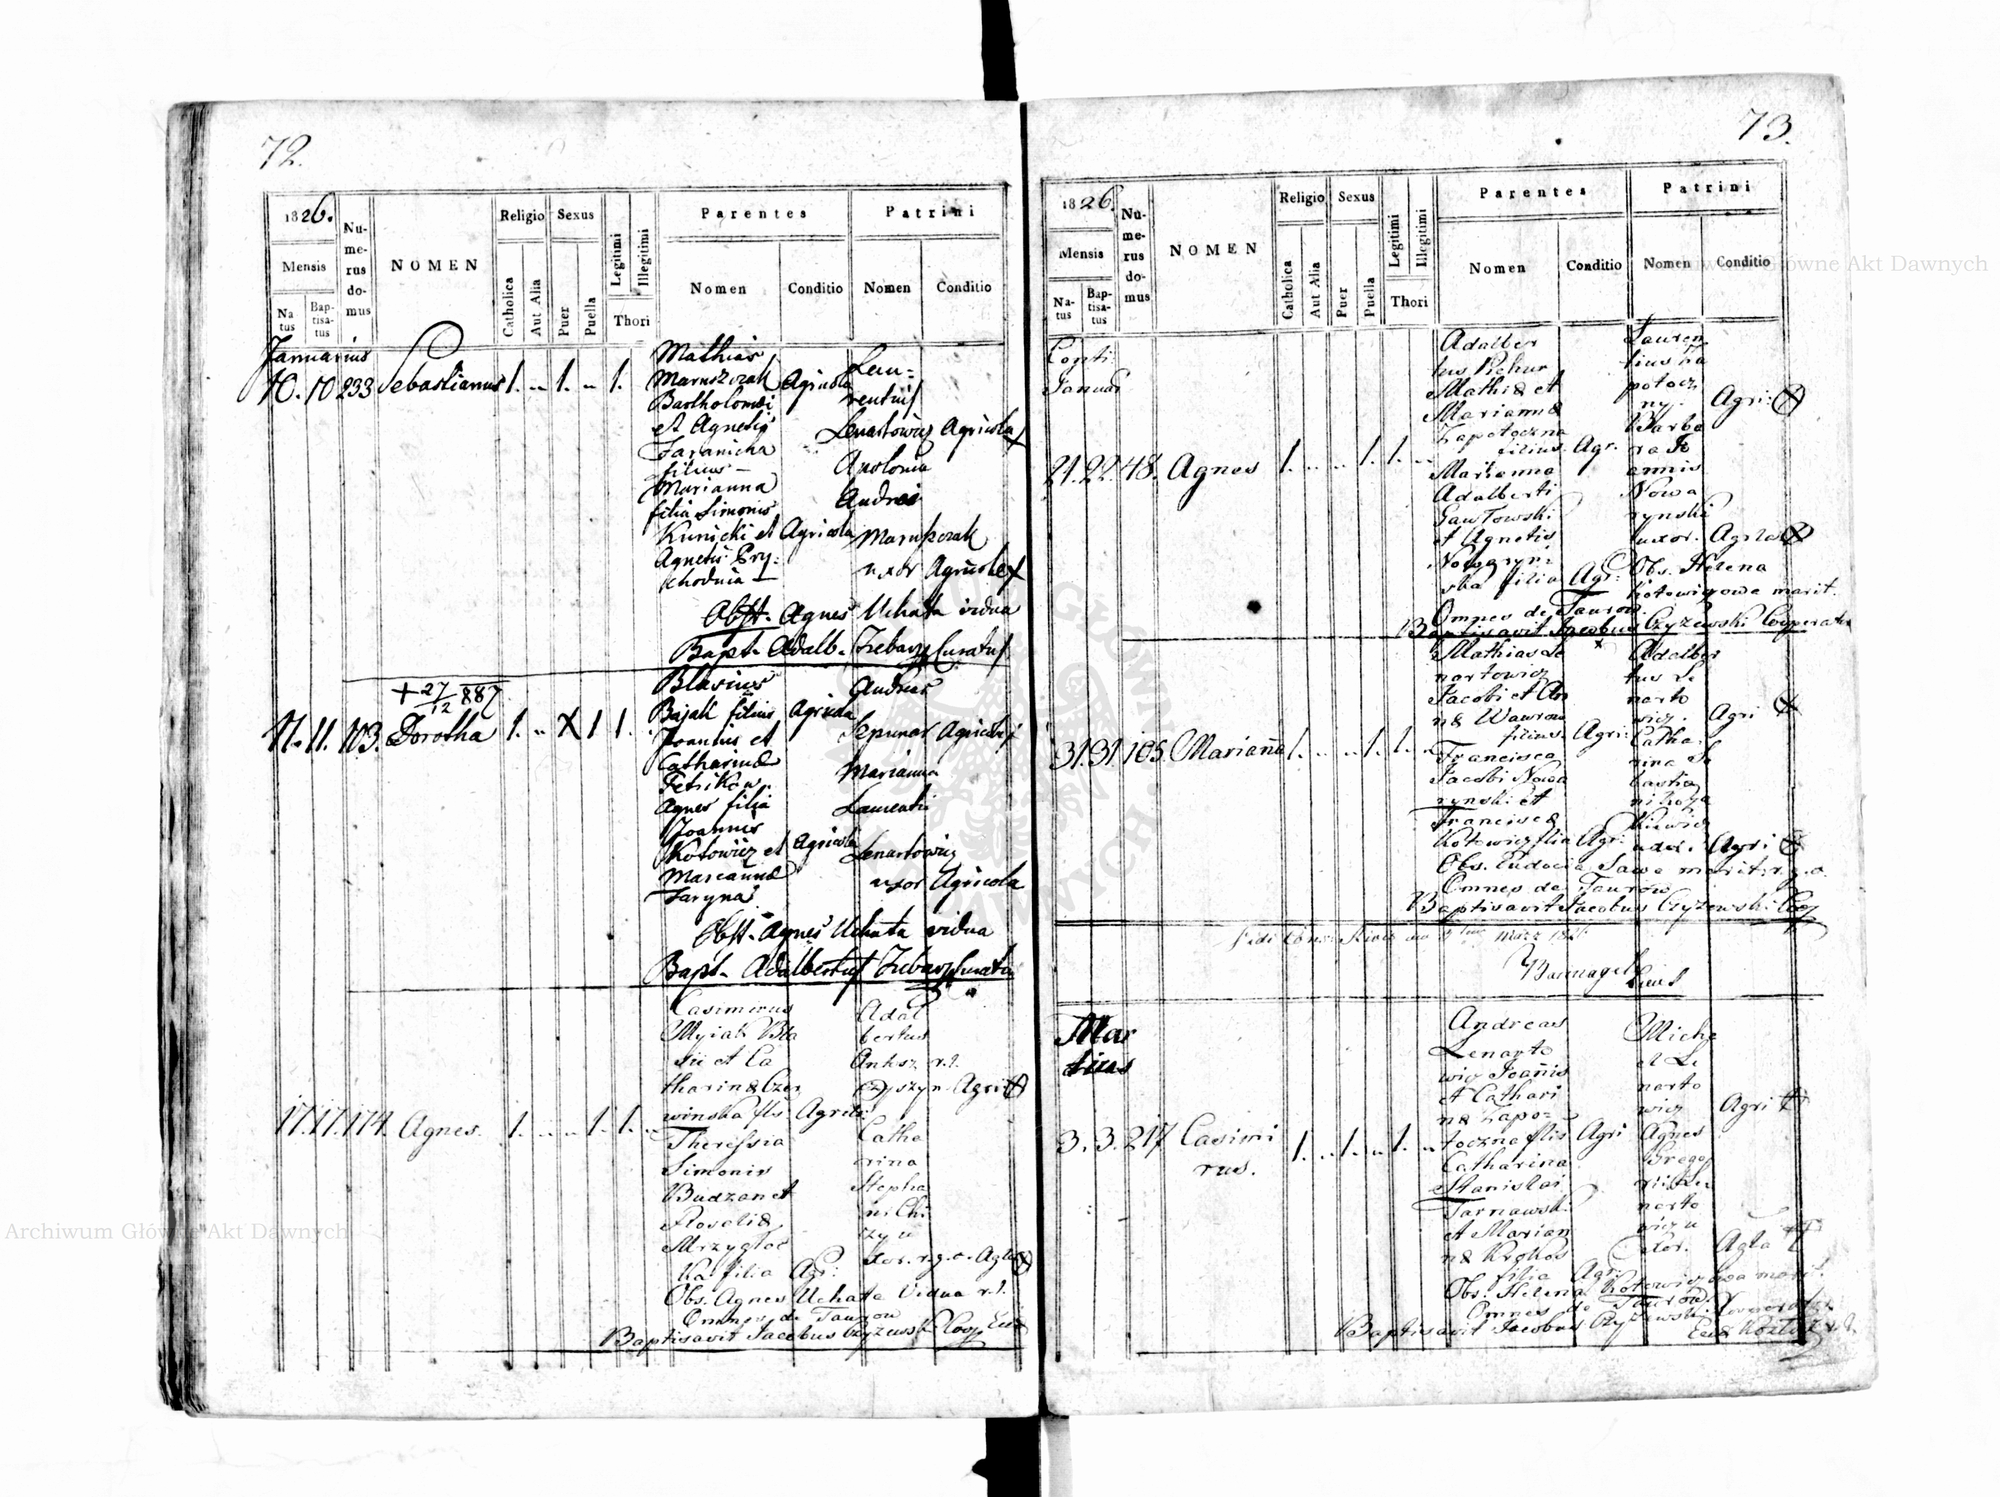 72.
1826.
Mensis
Na
tus
Bap-
tisa-
tus
Nu-
me-
rus
do-
mus
NOMEN
Religio
Catholica
Aut Alia
Sexus
Puer
Puella
Legitimi
Illegitimi
Thori
Parentes
Nomen
Conditio
Patrini
Nomen
Conditio
Januarius
10. 10 233 Sebastianus 1. 1. 1.
Mathias
Maruszczak Agricola
Bartholomæi
et Agnetis
Taranicha
filius
Marianna
filia Simonis
Kunicki et Agricola
Agnetis Pry-
schodnia
Lau-
rentius
Lenartowicz Agricola
Apolonia
Andrei
Maruszczak
uxor Agricolæ
Obst. Agnes Uchata vidua
Bapt. Adalb. Curatus
+ 27/12 887
11. 11. 103. Dorotha 1. X 1 1.
Blasius
Bajak filius Agricola
Joannis et
Catharinæ
Petrikow
Agnes filia
Joannis
Kotowicz et Agricola
Mariannæ
Taryna
Andreas
Agricola
Marianna
Laurentii
Lenartowicz
uxor Agricola
Obst. Agnes Uchata vidua
Bapt. Adalbertus Curatus
17. 17. 174. Agnes. 1. 1. 1.
Casimirus
Myjak Bla
sii et Ca
tharinæ Czer
winska fls. Agricola
Theressia
Simonis
Budzan et
Rosaliæ
Mrzygłoc
ka filia Agr:
Adal
bertus
Agri
Catha
rina
Stepha
ni Chi
zy u
xor. r.g.c. Agla
Obs. Agnes Uchata Vidua r.l.
Omnes de Taurow
Baptisavit Jacobus Czyzewski Coop
73.
1826.
Mensis
Na-
tus
Bap-
tisa-
tus
Nu-
me-
rus
do-
mus
NOMEN
Religio
Catholica
Aut Alia
Sexus
Puer
Puella
Legitimi
Illegitimi
Thori
Parentes
Nomen
Conditio
Patrini
Nomen
Conditio
Conti
Januar
21. 22. 48. Agnes 1. 1. 1.
Adalber
tus Pichur
Mathiæ et
Mariannæ
Zapotoczna
filius Agr.
Marianna
Adalberti
Gawłowski
et Agnetis
Nowaryni
ska filia Agr:
Lauren
tius Za
potocz
ny. Agri:
Barba
ra Jo
annis
Nowa
rynski
uxor. Agrlæ
Obs. Helena
Kotowiczowa marit.
Omnes de Taurow
Baptisavit Jacobus Czyzewski Cooperator
31. 31. 105. Marianna 1. 1. 1.
Mathias Le
nartowicz
Jacobi et An
næ Wawrow
filius Agri:
Francisca
Jacobi Nowa
rynski et
Franciscæ
Kotowicz filia Agr:
Adalber
tus Le
narto
wicz. Agri
Catha
rina Se
bastia
ni
uxor. Agri
Obs. Eudocia Sawa marit. r.g.c.
Omnes de Taurow
Baptisavit Jacobus Czyzewski Coop
Mar
tius
3. 3. 217 Casimi
rus. 1. 1. 1.
Andreas
Lenarto
wicz Joannis
et Cathari
næ Zapo-
toczna fls Agri
Catharina
Stanislai
Tarnawski
et Marian
næ Krokos
filia Agri
Micha
el Le
narto
wicz Agri
Agnes
Grego
rii Le
narto
wicz u
xor. Agla
Obs. Helena Kotowiczowa marit.
Omnes de Taurow
Baptisavit Jacobus Czyzewski Cooperator
Archiwum Główne Akt Dawnych
Archiwum Główne Akt Dawnych